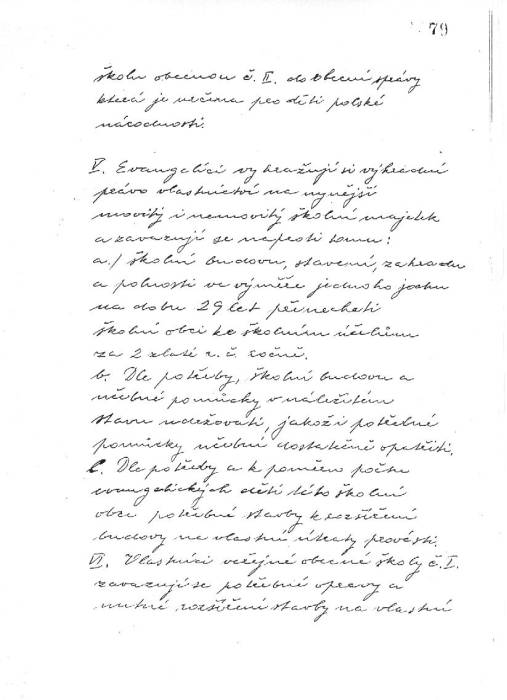 79
školu obecnou č. II. do obecní správy
která je určena pro děti polské
národnosti.
V. Evangelíci vyhražují si výhradní
právo vlastnictví na nynější
movitý i nemovitý školní majetek
a zavazují se naproti tomu:
a./ školní budovu, stavení, zahradu
a polnosti ve výměře jednoho jochu
na dobu 29 let přenechati
školní obci ke školním účelům
za 2 zlaté r. č. ročně.
b. Dle potřeby, školní budovu a
učebné pomůcky v náležitém
stavu udržovati, jakož i potřebné
pomůcky učebné dostatečně opatřiti.
c. Dle potřeby a k poměru počtu
evangelických dětí této školní
obce potřebné stavby k rozšíření
budovy na vlastní útraty provésti.
VI. Vlastníci veřejné obecné školy č. I.
zavazují se potřebné opravy a
nutné rozšíření stavby na vlastní